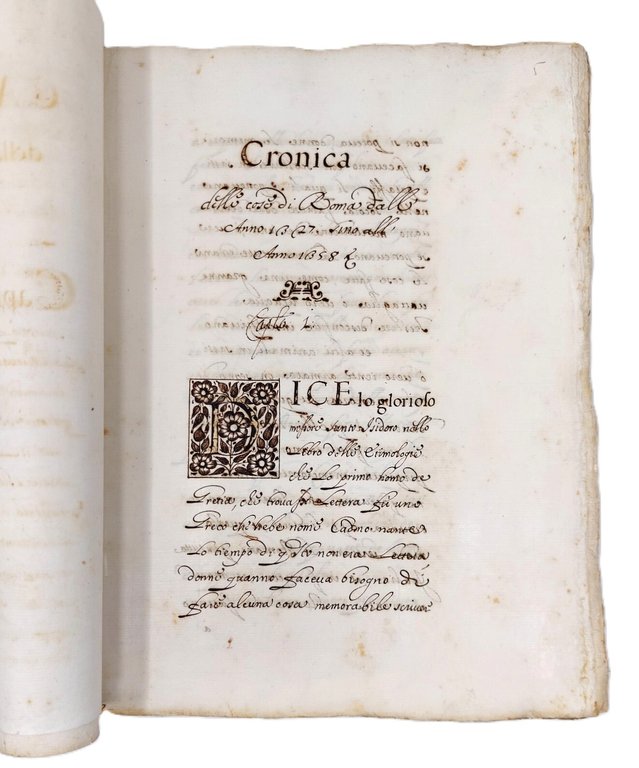 5
Cronica
delle cose di Roma dall
Anno 1327. sino all
Anno 1358
Capo 1.
DICE lo glorioso
missore Santo Isidoro nello
libro delle Etimologie
che lo primo homo de
Gretia, che trova Lettera fu uno
Greco che hebe nome Cadmo nante
Lo tiempo di non era Lettera
donne quanno faceva bisogno de
fare alcuna cosa memorabile scriver